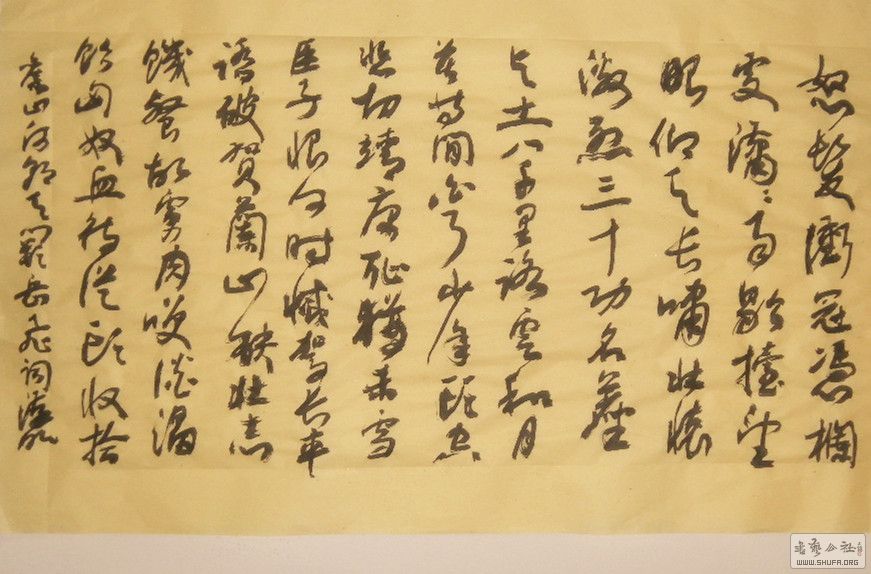 怒髮衝冠憑欄
處瀟瀟雨歇擡望
眼仰天長嘯壯懷
激烈三十功名塵
与土八千里路雲和月
莫等閒白了少年頭空
悲切靖康恥猶未雪
臣子恨何時憾駕長車
踏破賀蘭山缺壯志
饑餐胡虜肉笑談渴
飲匈奴血待從頭收拾
舊山河朝天闕岳飛詞滿江紅
書藝公社
WWW.SHUFA.ORG